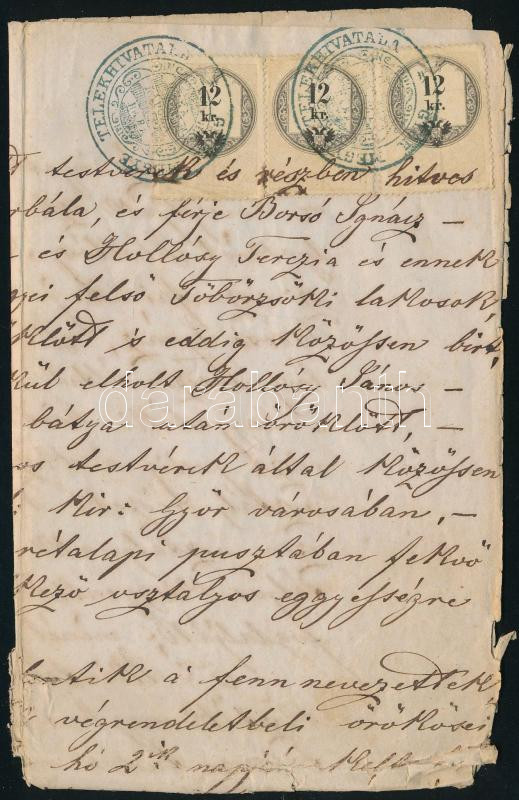 TELEKHIVATALA
12 kr. 12 kr. 12 kr.
testvérek és részben hitves
bála, és férje Borsó Ignácz –
– és Hollósy Terezia és ennek
felső Töbörzsöki lakosok,
is eddig közössen birt,
kül elholt Hollósy János –
bátya után öröklött, –
os testvérek által közössen
Kir: Győr városában, –
rétalapi pusztában fekvő
kező osztályos eggyességre
a fenn nevezettek
végrendeletbeli örökösei
hó 2ik napján kelt
darabanth